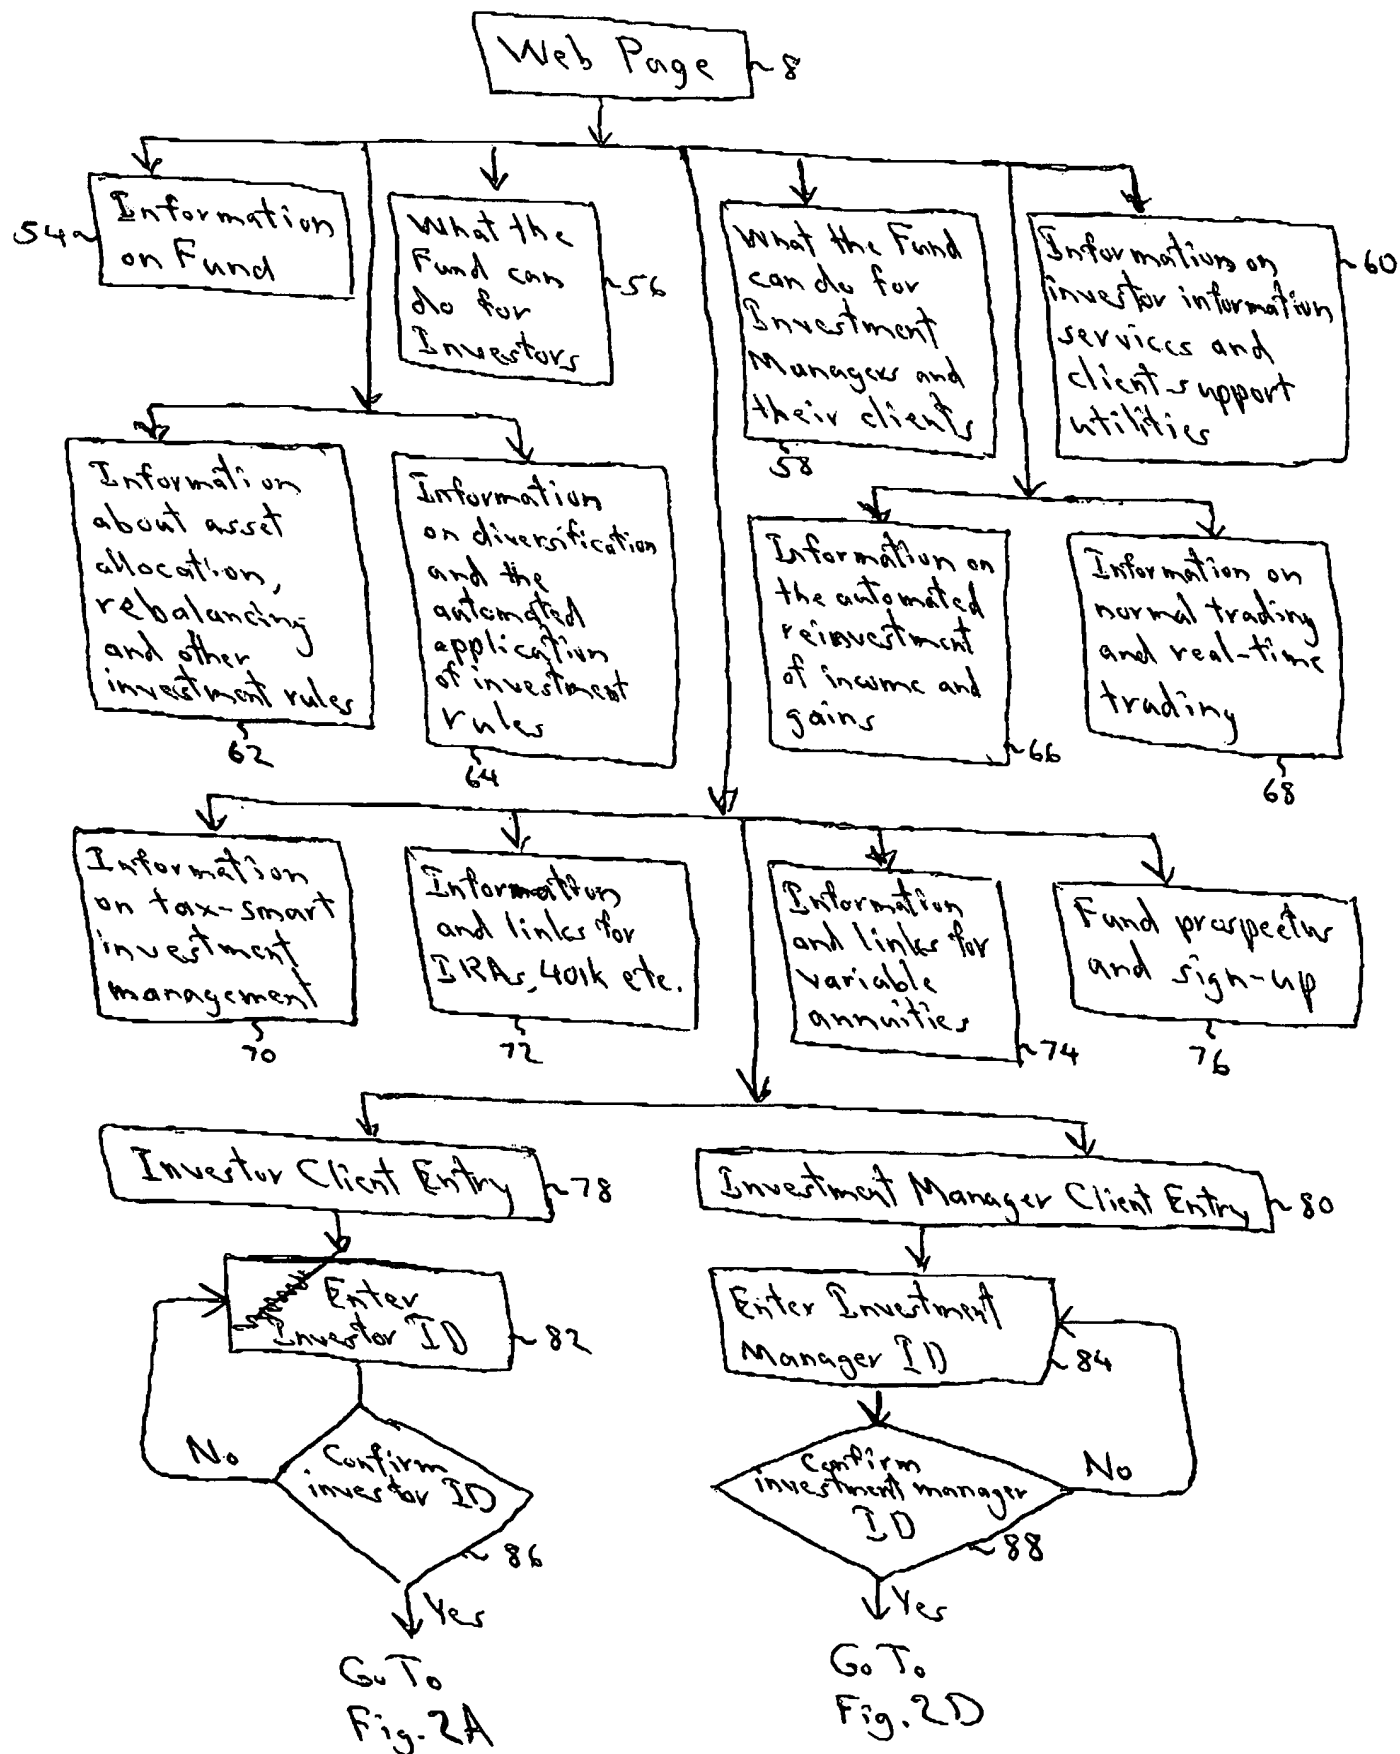 Web Page
8
54
Information
on Fund
What the
Fund can
do for
Investors
56
What the Fund
can do for
Investment
Managers and
their clients
58
Information on
investor information
services and
client-support
utilities
60
Information
about asset
allocation,
rebalancing
and other
investment rules
62
Information
on diversification
and the
automated
application
of investment
rules
64
Information on
the automated
reinvestment
of income and
gains
66
Information on
normal trading
and real-time
trading
68
Information
on tax-smart
investment
management
70
Information
and links for
IRAs, 401k etc.
72
Information
and links for
variable
annuities
74
Fund prospectus
and sign-up
76
Investor Client Entry
78
Investment Manager Client Entry
80
Enter
Investor ID
82
Enter Investment
Manager ID
84
Confirm
investor ID
No
86
Yes
Go To
Fig. 2A
Confirm
investment manager
ID
No
88
Yes
Go To
Fig. 2D